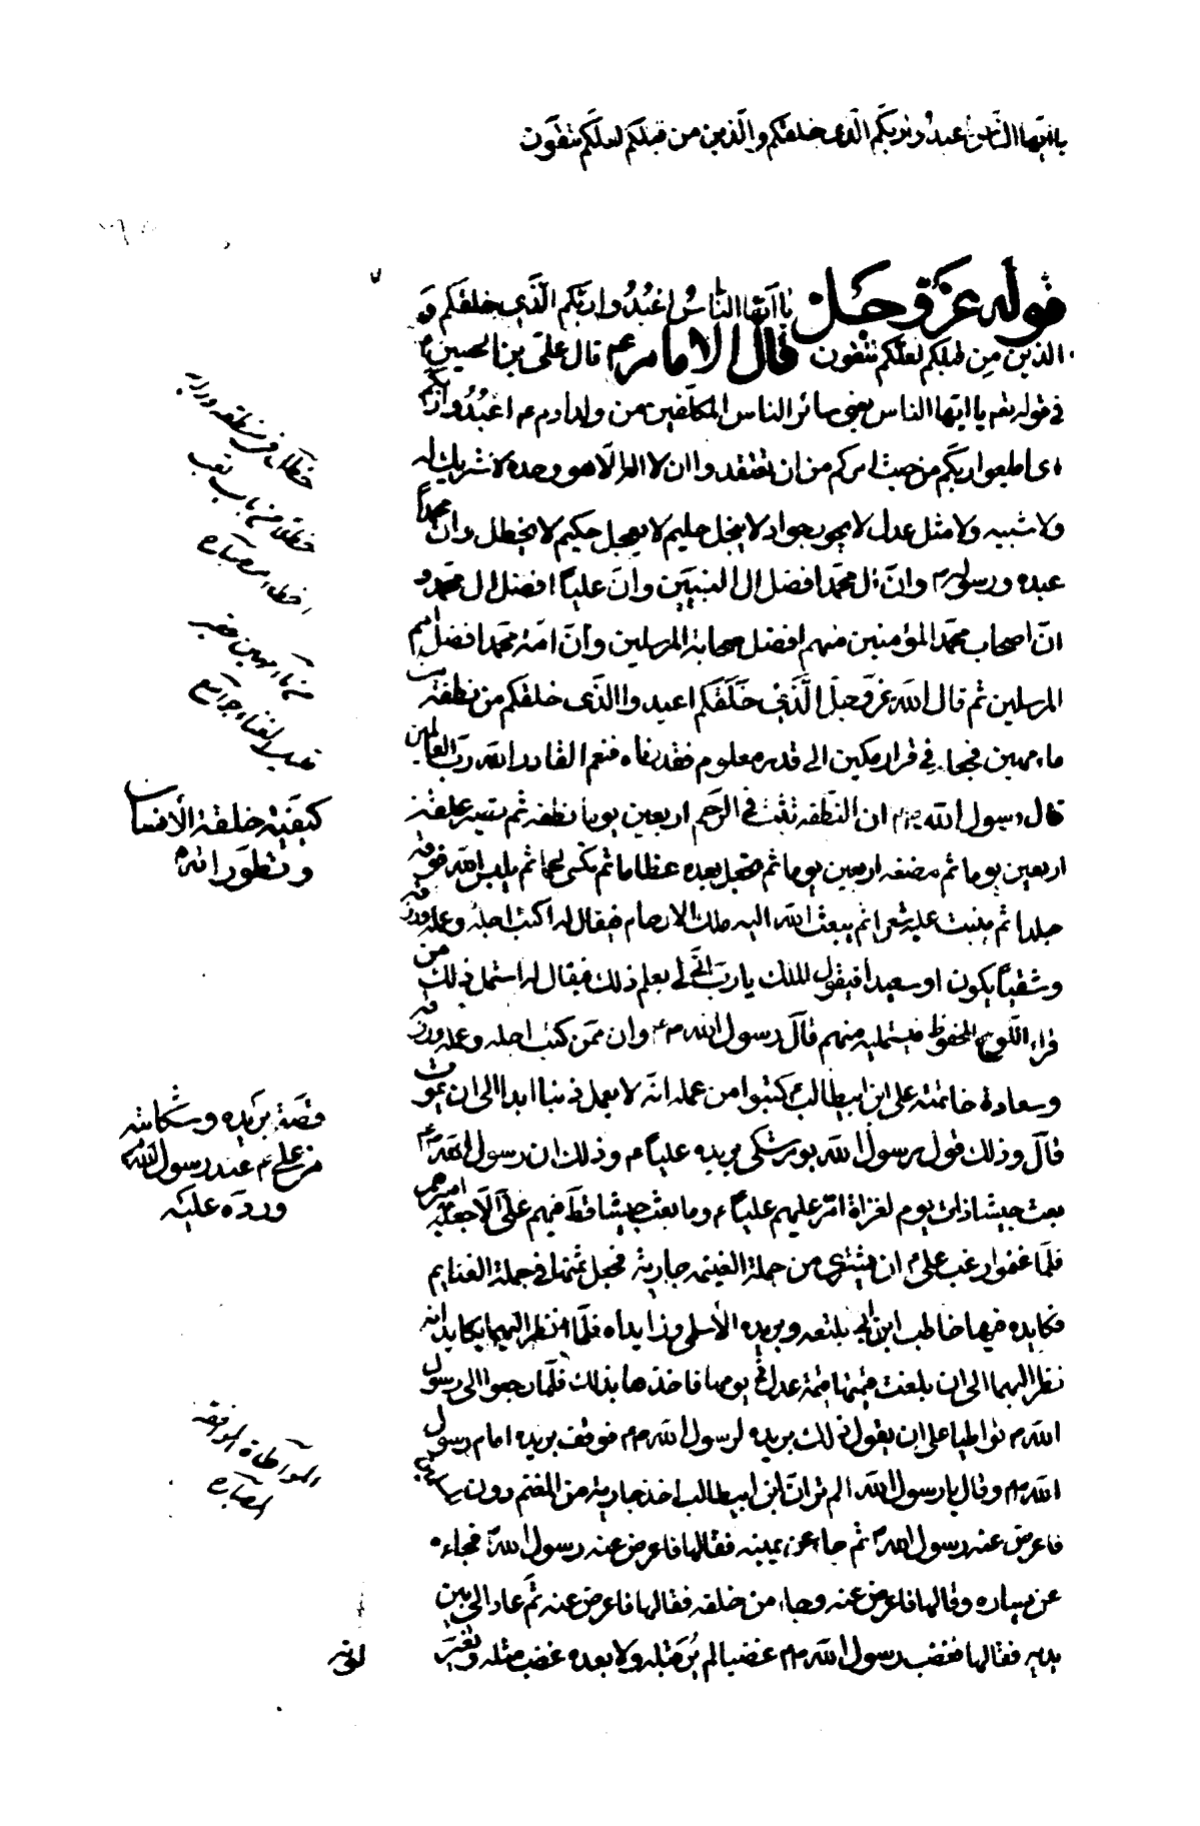 يا ايّها النّاس اعبدوا ربّكم الّذى خلقكم والّذين من قبلكم لعلّكم تتّقون
قوله عزّ وجلّ يا ايّها النّاسُ اعْبُدُوا ربّكم الّذي خلقكم و
الذين مِن قبلكم لعلّكم تتّقون قال الامام ع قال علىّ بن الحسين ع
في قوله تعم يا ايّها الناس يعنى سائر الناس المكلّفين من ولد ادم ع اعْبُدُوا ربّكم
اى اطيعوا ربّكم من حيث امركم من ان تعتقدوا ان لا اله الّا هو وحده لا شريك له
ولا شبيه ولا مثل عدل لا يجور جواد لا يبخل حليم لا يعجل حكيم لا يخطل وانّ محمّداً
عبده ورسوله ص وانّ ال محمّد افضل ال النبيّين وانّ عليّاً افضل ال محمّد و
انّ اصحاب محمّد المؤمنين منهم افضل صحابة المرسلين وانّ امّة محمّد افضل امم
المرسلين ثم قال الله عزّ وجلّ الَّذي خَلَقَكم اعبدوا الّذى خلقكم من نطفة من
ماء مهين فجعله في قرار مكين الى قدر معلوم فقدرناه فنعم القادر الله ربّ العالمين
قال رسول الله ص ان النّطفه تثبت في الرّحم اربعين يوما نطفه ثم تصير علقة
اربعين يوما ثم مضغه اربعين يوما ثم تجعل بعده عظاما ثم تكسى لحما ثم يلبس الله فوقه
جلدا ثم ينبت عليه شعرا ثم يبعث الله اليه ملك الارحام فيقال له اكتب اجله وعمله ورزقه
وشقيّاً يكون او سعيداً فيقول الملك يا ربّ انّى لى بعلم ذلك فيقال له استمل ذلك من
قراء اللّوح المحفوظ فيستمليه منهم قال رسول الله ص وان ممّن كتب اجله وعمله ورزقه
وسعادة خاتمته على ابن ابيطالب ع كتبوا من عمله انّه لا يعمل ذنبا ابدا الى ان يموت
قال وذلك قول رسول الله يوم شكى بريده عليّاً ع وذلك ان رسول الله ص
بعث جيشا ذات يوم لغزاة امّر عليهم عليّاً ع وما بعث جيشا قطّ فيهم علىّ الّا جعله اميرهم
فلمّا غنموا رغب على ع ان يشترى من جملة الغنيمه جارية فجعل ثمنها في جملة الغنايم
فكايده فيها حاطب ابن ابى بلتعه وبريده الأسلمى وزايداه فلمّا نظر اليهما يكايدانه
نظر اليهما الى ان بلغت قيمتها قيمة عدل في يومها فاخذها بذلك فلمّا رجعوا الى رسول
الله ص تواطيا على ان يقول ذلك بريده لرسول الله ص فوقف بريده امام رسول
الله ص وقال يا رسول الله الم تر انّ ابن ابيطالب اخذ جارية من المغنم دون المسلمين
فاعرض عنه رسول الله ص ثم جاء عن يمينه فقالها فاعرض عنه رسول الله ص فجاءه
عن يساره وقالها فاعرض عنه وجاء من خلفه فقالها فاعرض عنه ثمّ عاد الى بين
يديه فقالها فغضب رسول الله ص غضبا لم يُرَ قبله ولا بعده غضب مثله وتغيّر
لونه
كيفيّة خلقة الأنسان
وتطوّراته
قصّة بريده وشكايته
من على ع عند رسول الله ص
وردّه عليه